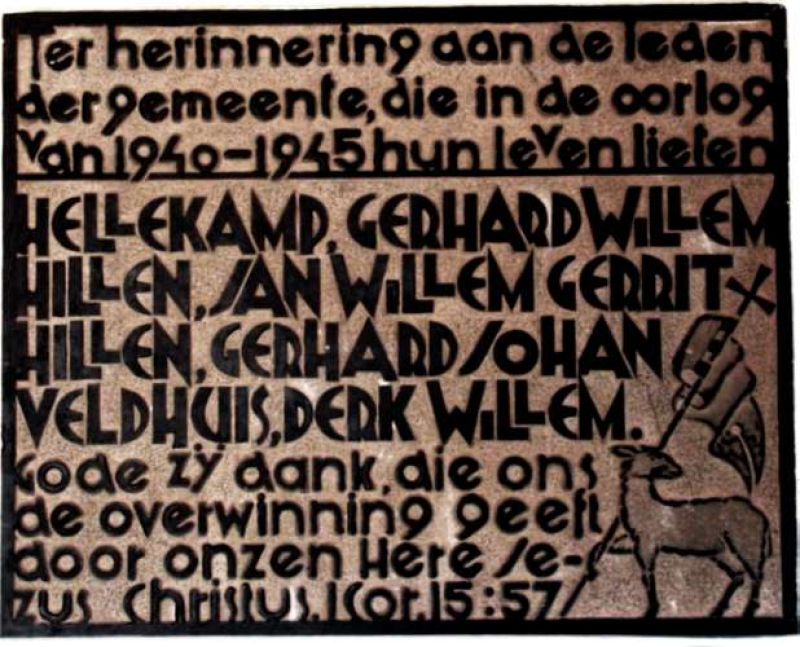 Ter herinnering aan de leden
der gemeente, die in de oorlog
van 1940-1945 hun leven lieten
HELLEKAMP, GERHARD WILLEM
HILLEN, JAN WILLEM GERRIT
HILLEN, GERHARD JOHAN
VELDHUIS, DERK WILLEM.
Gode zÿ dank, die ons
de overwinning geeft
door onzen Here Je-
zus Christus. I Cor. 15:57